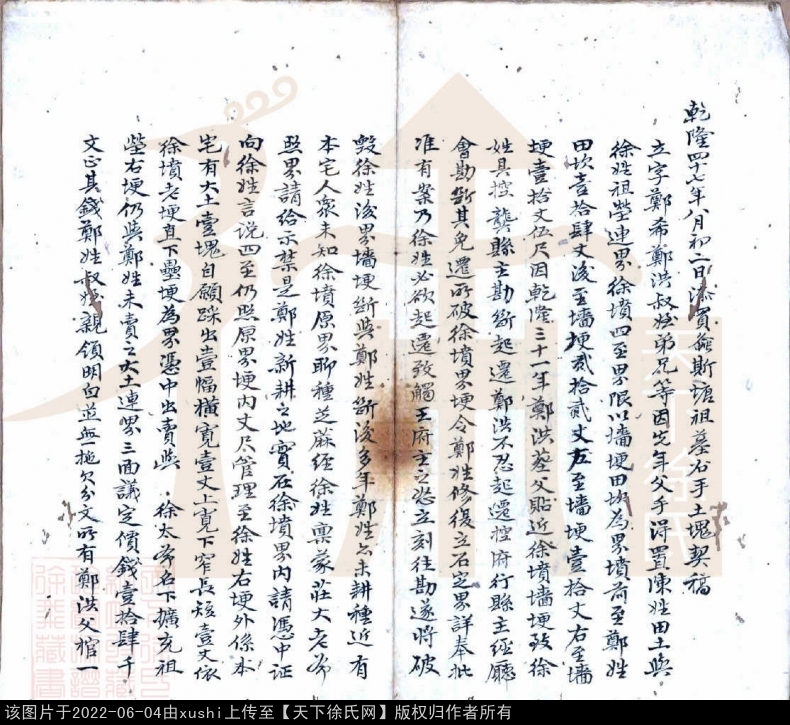 乾隆四十七年八月初二日添買螽斯塘祖墓右手土塊契稿
立字鄭希鄭洪叔侄弟兄等因先年父手淂置陳姓田土與
徐姓祖塋連界徐墳四至界限以墻埂田坎為界墳前至鄭姓
田坎壹拾肆丈後至墻埂貳拾貳丈左至墻埂壹拾丈右至墻
埂壹拾丈伍尺因乾隆三十一年鄭洪塟父貼近徐墳墻埂致徐
姓具控龔縣主勘斷起遷鄭洪不忍起遷控府行縣主經廳
會勘斷其免遷所破徐墳界埂令鄭姓修復立石定界詳奉批
准有案乃徐姓必欲起遷致觸王府主之怒立刻往勘遂將破
毀徐姓後界墻埂斷與鄭姓斷後多年鄭姓亦未耕種近有
本宅人衆未知徐墳原界聊種芝蔴經徐姓稟蒙莊大老爺
照界請給示禁是鄭姓新耕之地實在徐墳界內請憑中証
向徐姓言説四至仍照原界埂內丈尺管理至徐姓右埂外係本
宅有大土壹塊自願踩出壹幅橫寬壹丈上寛下窄長短壹丈依
徐墳老埂直下壘埂為界憑中出賣與 徐太爷名下擴充祖
塋右埂仍與鄭姓未賣之大土連界三面議定價錢壹拾肆千
文正其錢鄭姓叔侄親領明白並無一拖欠分文所有鄭洪父棺一
天下徐氏
该图片于2022-06-04由xushi上传至【天下徐氏网】版权归作者所有